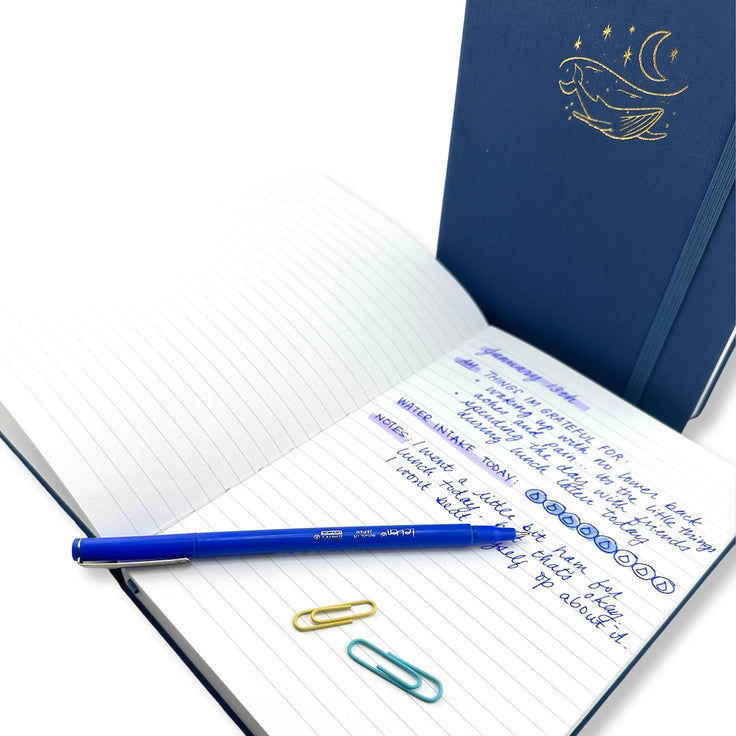 January 13th
AM THINGS IM GRATEFUL FOR:
• waking up with no lower back
aches and pain... its the little things
• spending the day with friends
during lunch later today
WATER INTAKE TODAY:
NOTES: I went a little bit ham for
lunch today but thats okay.
I wont beat myself up about it.
Le Pen